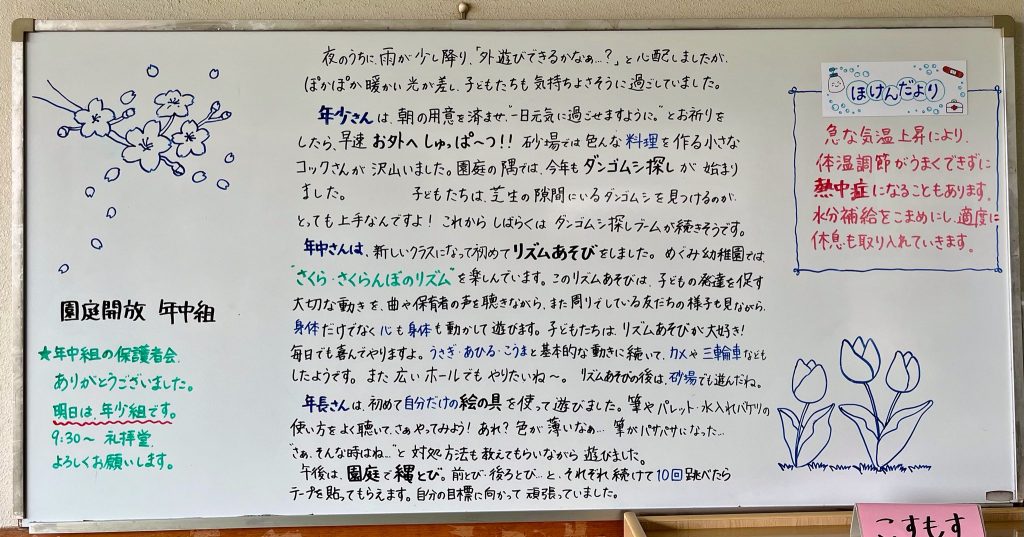 夜のうちに、雨が少し降り、「外遊びできるかなぁ…?」と心配しましたが、
ぽかぽか暖かい光が差し、子どもたちも気持ちよさそうに過ごしていました。
年少さんは、朝の用意を済ませ、"一日元気に過ごせますように。"とお祈りを
したら、早速お外へしゅっぱ〜つ!! 砂場では色んな料理を作る小さな
コックさんが沢山いました。園庭の隅では、今年もダンゴムシ探しが始まり
ました。 子どもたちは、芝生の隙間にいるダンゴムシを見つけるのが、
とっても上手なんですよ! これからしばらくはダンゴムシ探しブームが続きそうです。
年中さんは、新しいクラスになって初めてリズムあそびをしました。めぐみ幼稚園では、
"さくら・さくらんぼのリズム"を楽しんでいます。このリズムあそびは、子どもの発達を促す
大切な動きを、曲や保育者の声を聴きながら、また周りでしている友だちの様子も見ながら、
身体だけでなく心も身体も動かして遊びます。子どもたちは、リズムあそびが大好き!
毎日でも喜んでやりますよ。うさぎ・あひる・こうまと基本的な動きに続いて、カメや三輪車なども
したようです。また広いホールでもやりたいね〜。リズムあそびの後は、砂場でも遊んだね。
年長さんは、初めて自分だけの絵の具を使って遊びました。筆やパレット・水入れバケツの
使い方をよく聴いて、さぁやってみよう! あれ? 色が薄いなぁ… 筆がパサパサになった…
"さぁ、そんな時はね…"と対処方法も教えてもらいながら遊びました。
午後は、園庭で縄とび。前とび・後ろとび…と、それぞれ続けて10回跳べたら
テープを貼ってもらえます。自分の目標に向かって頑張っていました。
園庭開放 年中組
★年中組の保護者会、
ありがとうございました。
明日は、年少組です。
9:30〜 礼拝堂
よろしくお願いします。
ほけんだより
急な気温上昇により、
体温調節がうまくできずに
熱中症になることもあります。
水分補給をこまめにし、適度に
休息も取り入れていきます。
こすもす